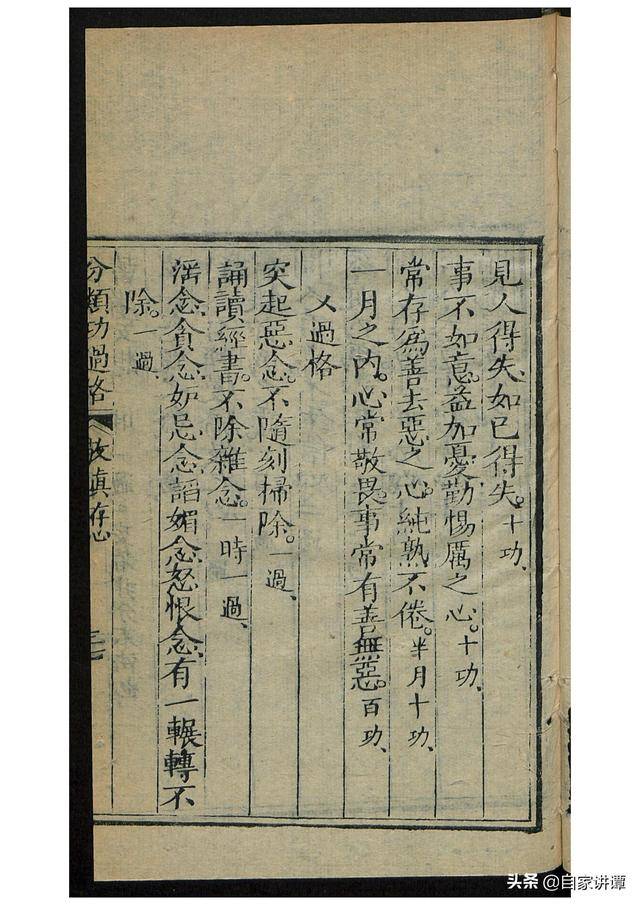 見人得失如已得失。十功、
事不如意。益加憂勤惕厲之心。十功、
常存爲善去惡之心。純熟不倦。半月十功、
一月之內。心常敬畏。事常有善無惡。百功、
乂過格
突起惡念。不隨刻掃除。一過、
誦讀經書。不除雜念。一時一過、
滛念貪念妒忌念諂媚念怒恨念有一輾轉不
除。一過
分類功過格
敦眞存心
头条 @自家讲谭